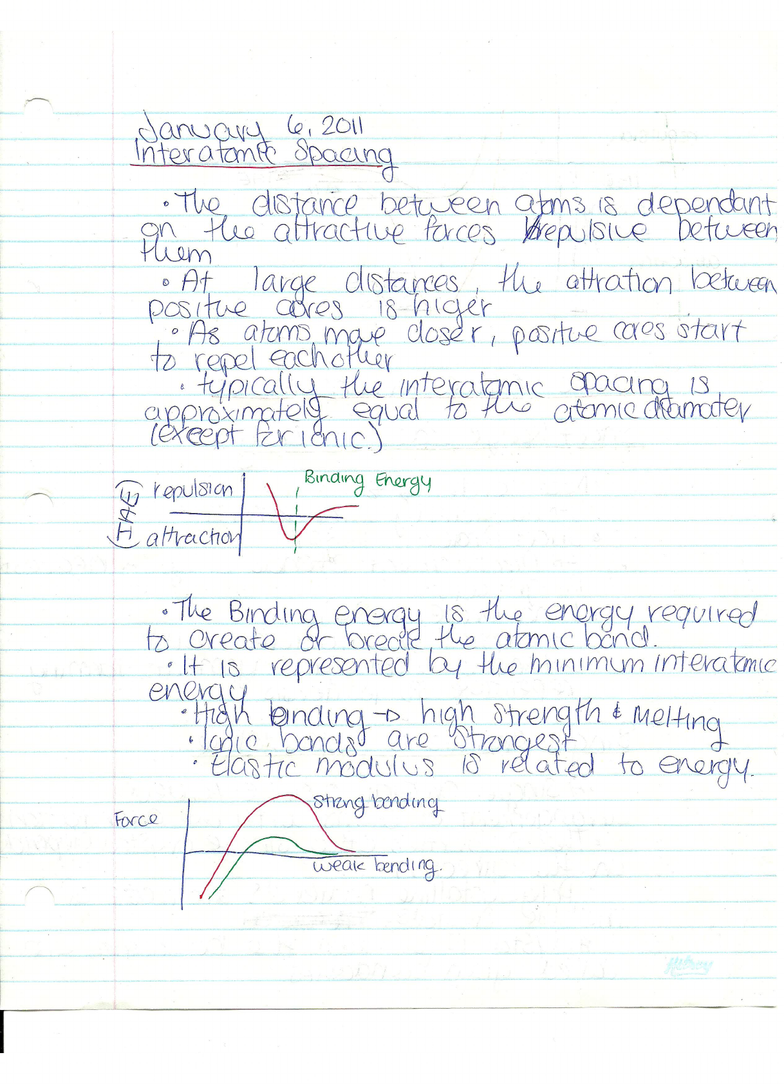 January 6, 2011
Interatomic Spacing
• The distance between atoms is dependant
on the attractive forces / repulsive between
them
• At large distances, the attration between
positive cores is higer
• As atoms move closer, positive cores start
to repel eachother
• typically the interatomic spacing is
approximately equal to the atomic diamater
(except for ionic.)
Binding Energy
(IAE)
repulsion
attraction
• The Binding energy is the energy required
to create or break the atomic bond.
• It is represented by the minimum interatomic
energy
• High binding → high strength & melting
• Ionic bonds are strongest
• Elastic modulus is related to energy.
strong bonding
Force
weak bonding.
Hilroy